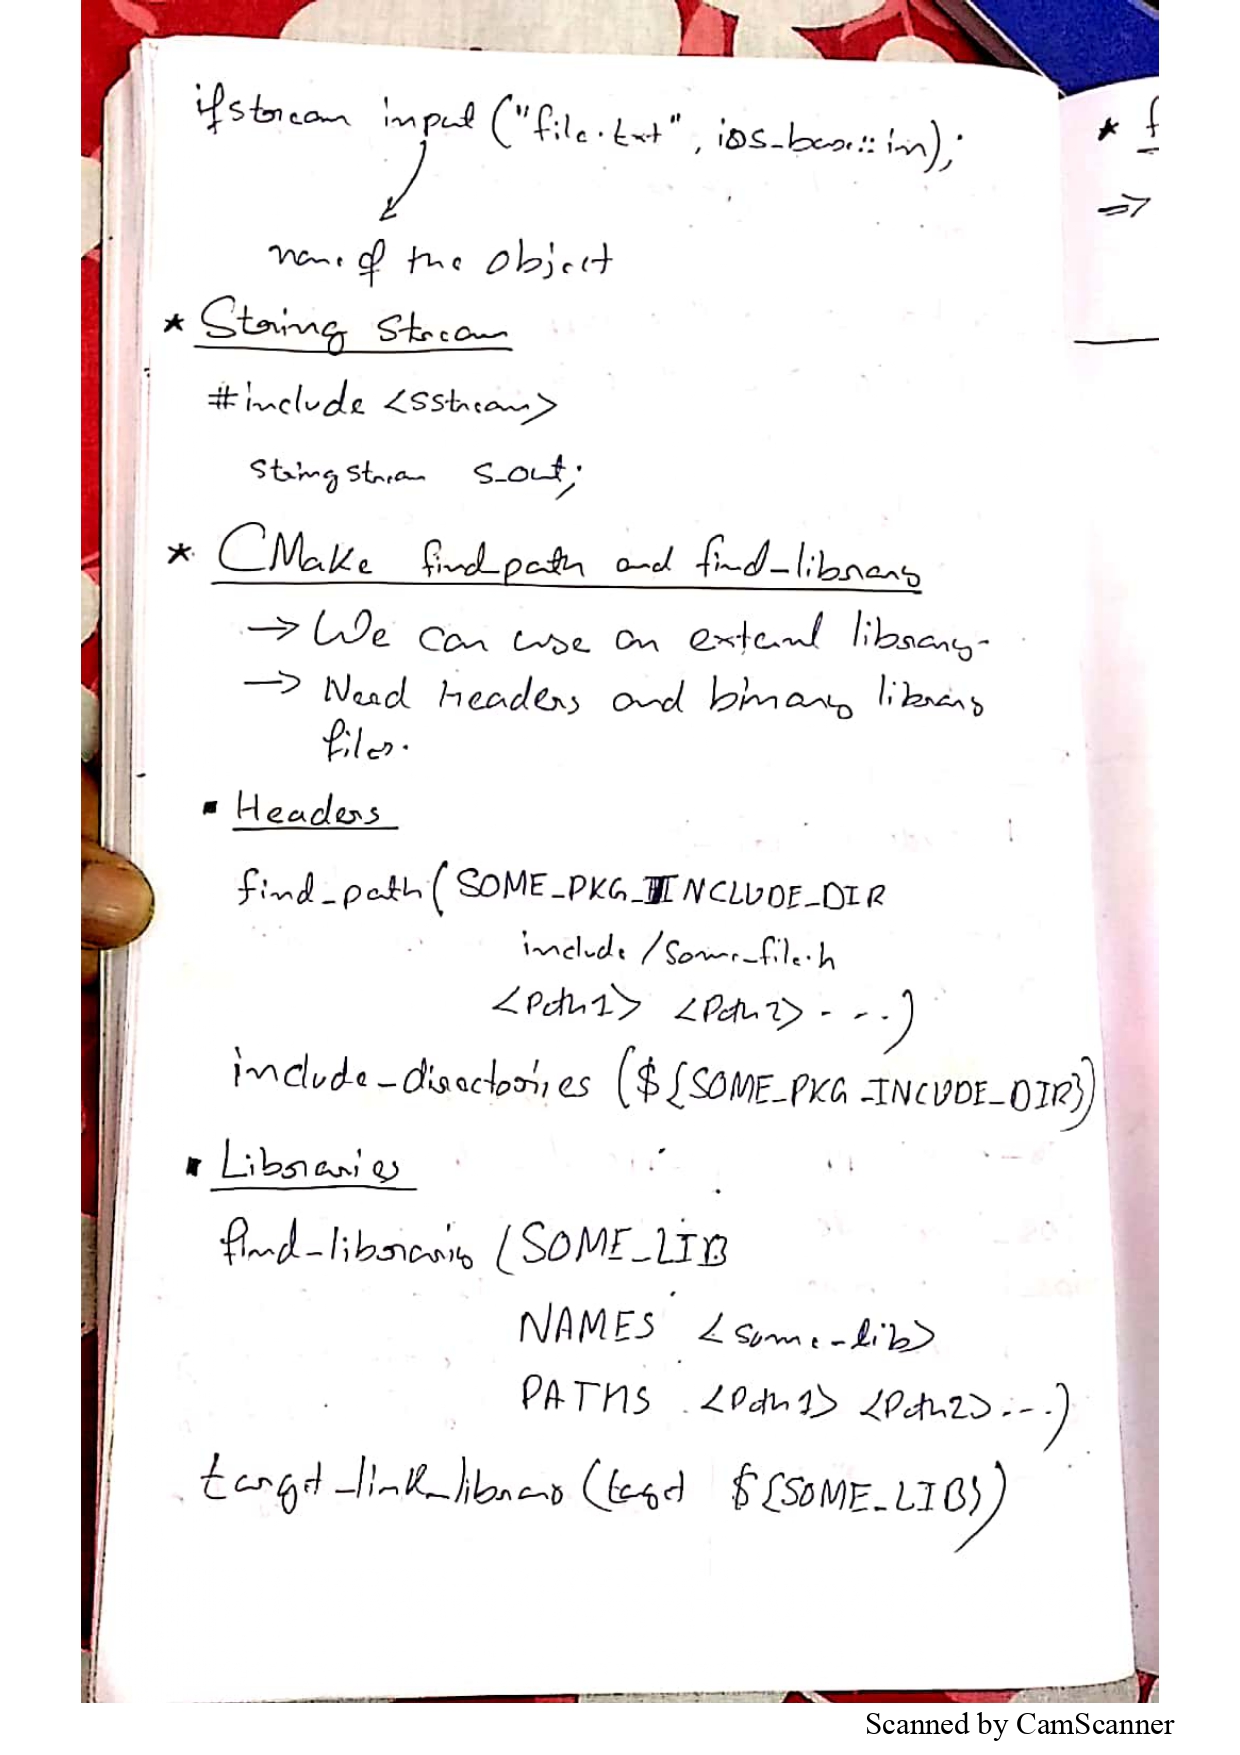 ifstream input ("file.txt", ios_base::in);
name of the object
* String Stream
#include <sstream>
stringstream s_out;
* CMake find_path and find_library
→ We can use an external library.
→ Need Headers and binary library
files.
▪ Headers
find_path(SOME_PKG_INCLUDE_DIR
include/some_file.h
<Path1> <Path2> - - - .)
include_directories (${SOME_PKG_INCLUDE_DIR})
▪ Libraries
find_libraries (SOME_LIB
NAMES <some_lib>
PATHS <Path1> <Path2> ...)
target_link_library (target ${SOME_LIB})
* f
⇒
Scanned by CamScanner